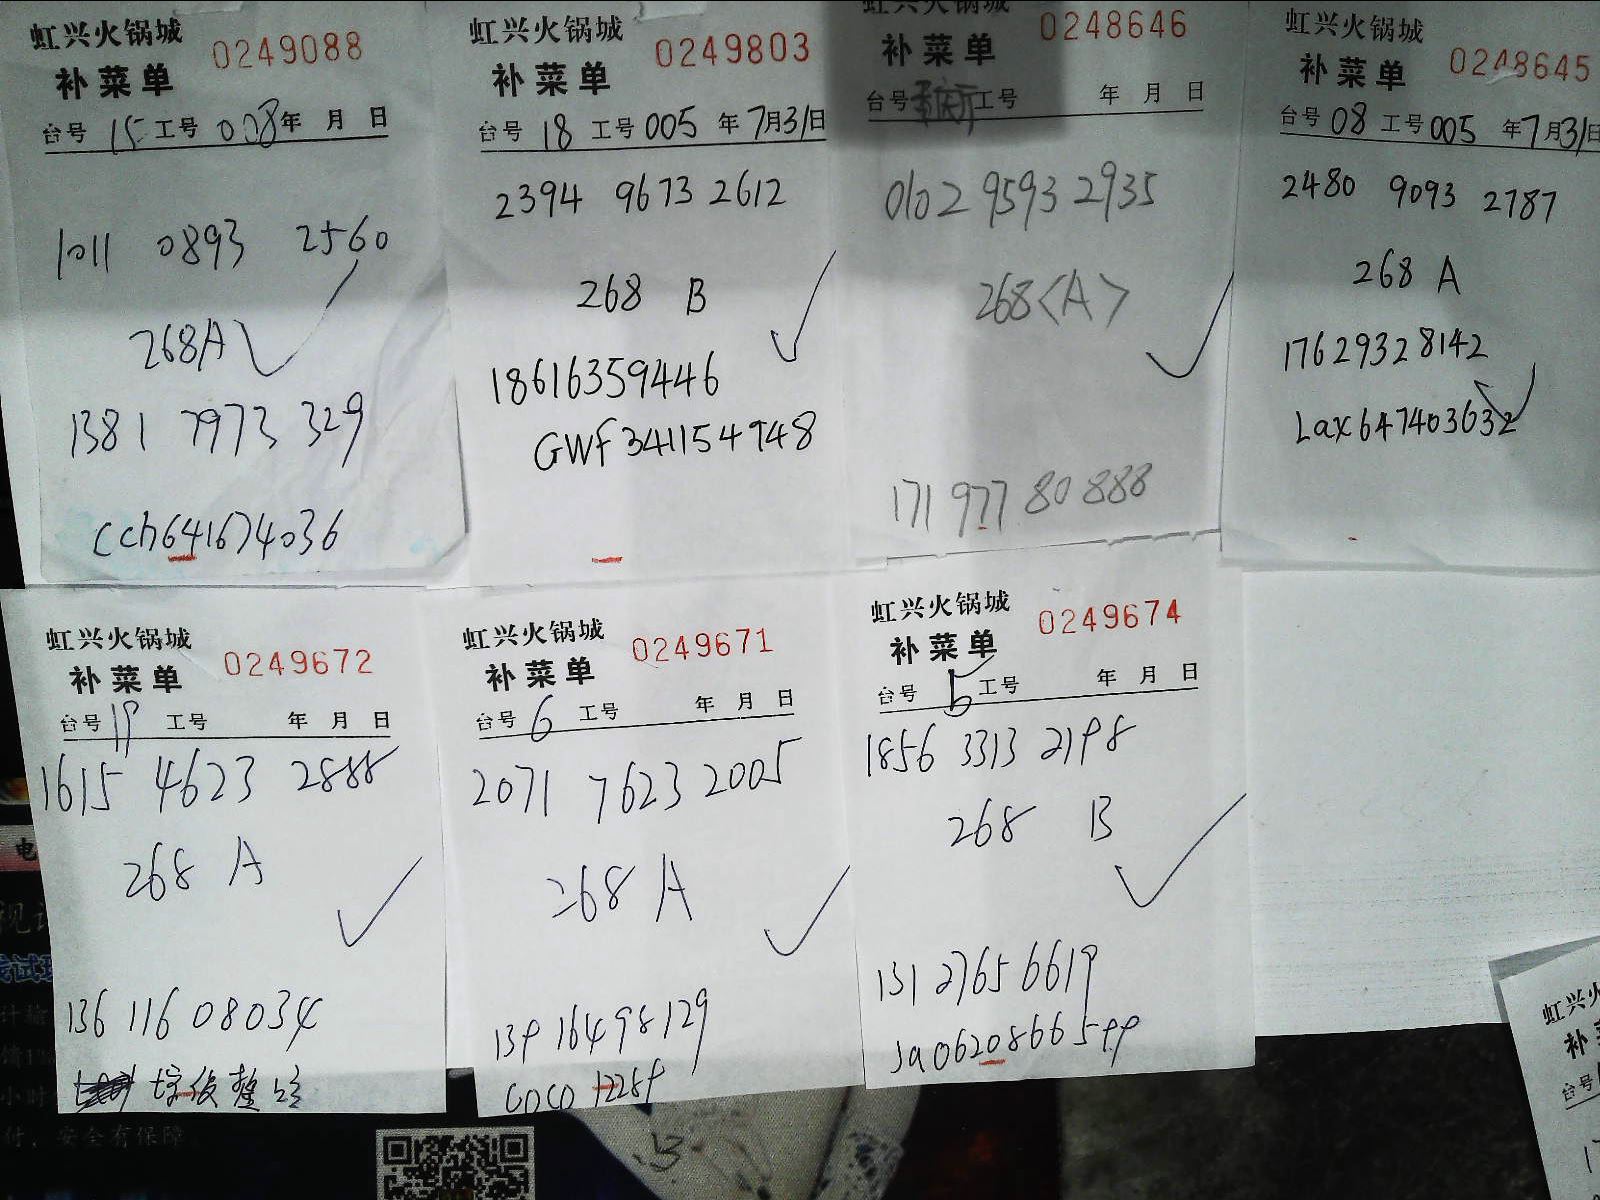 虹兴火锅城 0249088
补菜单
台号 15 工号 008 年 月 日
1011 0893 2560
268A
1381 7973 329
cch641674036
虹兴火锅城 0249803
补菜单
台号 18 工号 005 年 7月31日
2394 9673 2612
268 B
18616359446
GWf341154948
虹兴火锅城 0248646
补菜单
台号 工号 年 月 日
0102 9593 2935
268<A>
171 977 80 888
虹兴火锅城 0248645
补菜单
台号 08 工号 005 年 7月31日
2480 9093 2787
268 A
17629328142
Lax647403632
虹兴火锅城 0249672
补菜单
台号 19 工号 年 月 日
1615 4623 2888
268 A
136 116 08034
虹兴火锅城 0249671
补菜单
台号 6 工号 年 月 日
2071 7623 2005
268 A
139 16498129
COCO 12289
虹兴火锅城 0249674
补菜单
台号 工号 年 月 日
1856 3313 2198
268 B
131 2765 6619
Ja0620866599
虹兴
补
台号
电
小时
付，安全有保障